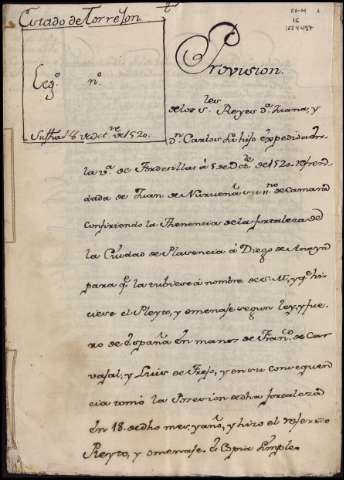 Estado de Torrejon
Leg.º n.º
Su fha 18 de Dic.re de 1520.
Provision.
de los S.res Reyes D.ª Juana, y
D.n Carlos su hijo expedida en
la v.ª de Tordesillas à 5 de Dic.re de 1520. refren
dada de Juan de
confiriendo la Thenencia de la fortaleza de
la Ciudad de Plasencia á Diego de Anaya
para q.e la tubiese á nombre de S. M. y q.e hi
ciese el Pleyto, y omenaje segun ley, y fue
ro de España en manos de Fran.co de Car
vajal, y Luis de Trejo, y en su consequen
cia tomó la Posesion de dha fortaleza
en 18. de dho mes, y año, y hizo el referido
Pleyto, y omenaje. es Copia simple.